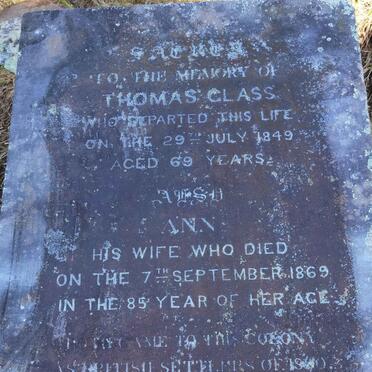 SACRED
TO THE MEMORY OF
THOMAS GLASS
WHO DEPARTED THIS LIFE
ON THE 29TH JULY 1849
AGED 69 YEARS.
ALSO
ANN
HIS WIFE WHO DIED
ON THE 7TH SEPTEMBER 1869
IN THE 85 YEAR OF HER AGE
CAME TO THIS COLONY
AS BRITISH SETTLERS OF